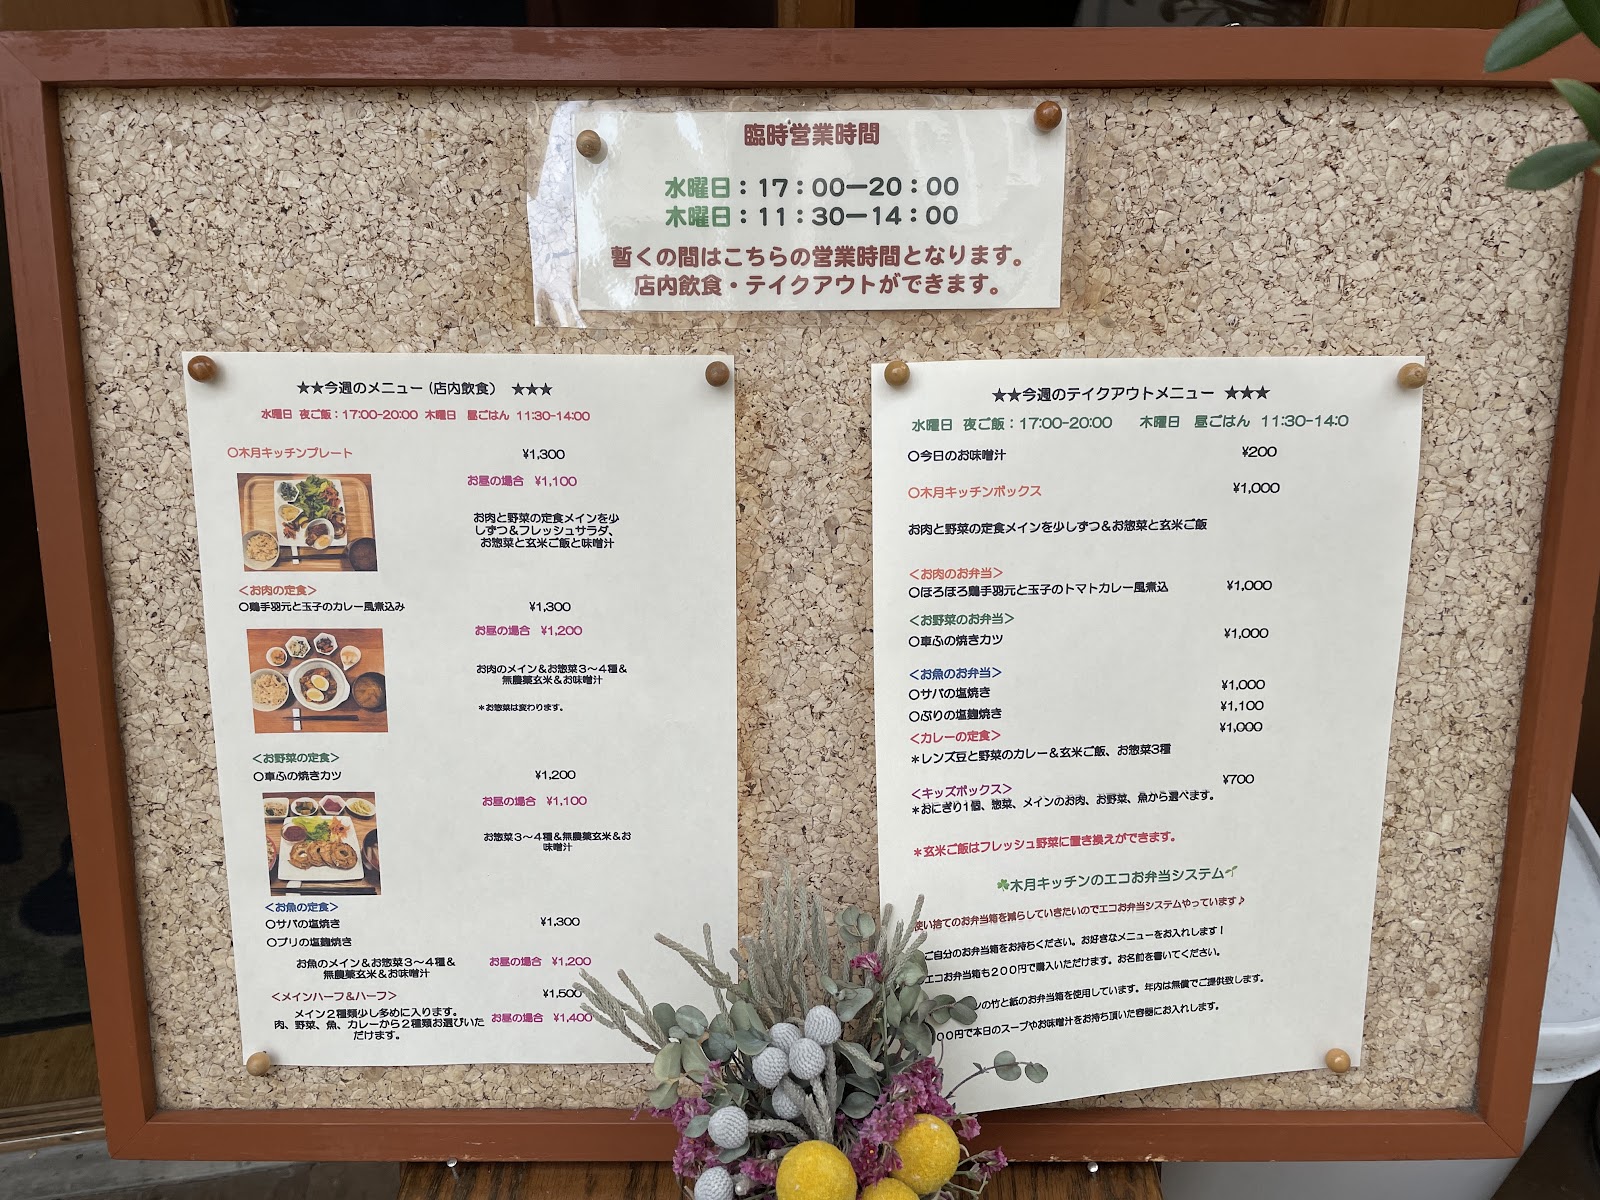 臨時営業時間
水曜日：17：00ー20：00
木曜日：11：30ー14：00
暫くの間はこちらの営業時間となります。
店内飲食・テイクアウトができます。
★★今週のメニュー(店内飲食) ★★★
水曜日 夜ご飯：17:00-20:00 木曜日 昼ごはん 11:30-14:00
〇木月キッチンプレート ¥1,300
お昼の場合 ¥1,100
お肉と野菜の定食メインを少
しずつ＆フレッシュサラダ、
お惣菜と玄米ご飯と味噌汁
＜お肉の定食＞
〇鶏手羽元と玉子のカレー風煮込み ¥1,300
お昼の場合 ¥1,200
お肉のメイン＆お惣菜３～４種＆
無農薬玄米＆お味噌汁
＊お惣菜は変わります。
＜お野菜の定食＞
〇車ふの焼きカツ ¥1,200
お昼の場合 ¥1,100
お惣菜３～４種＆無農薬玄米＆お
味噌汁
＜お魚の定食＞
〇サバの塩焼き ¥1,300
〇ブリの塩麹焼き
お魚のメイン＆お惣菜３～４種＆ お昼の場合 ¥1,200
無農薬玄米＆お味噌汁
＜メインハーフ＆ハーフ＞ ¥1,500
メイン２種類少し多めに入ります。
肉、野菜、魚、カレーから２種類お選びいた お昼の場合 ¥1,400
だけます。
★★今週のテイクアウトメニュー ★★★
水曜日 夜ご飯：17:00-20:00 木曜日 昼ごはん 11:30-14:0
〇今日のお味噌汁 ¥200
〇木月キッチンボックス ¥1,000
お肉と野菜の定食メインを少しずつ＆お惣菜と玄米ご飯
＜お肉のお弁当＞
〇ほろほろ鶏手羽元と玉子のトマトカレー風煮込 ¥1,000
＜お野菜のお弁当＞
〇車ふの焼きカツ ¥1,000
＜お魚のお弁当＞
〇サバの塩焼き ¥1,000
〇ぶりの塩麹焼き ¥1,100
＜カレーの定食＞ ¥1,000
＊レンズ豆と野菜のカレー＆玄米ご飯、お惣菜3種
＜キッズボックス＞ ¥700
＊おにぎり1個、惣菜、メインのお肉、お野菜、魚から選べます。
＊玄米ご飯はフレッシュ野菜に置き換えができます。
🍀木月キッチンのエコお弁当システム🌱
使い捨てのお弁当箱を減らしていきたいのでエコお弁当システムやっています♪
ご自分のお弁当箱をお持ちください。お好きなメニューをお入れします！
エコお弁当箱も２００円で購入いただけます。お名前を書いてください。
の竹と紙のお弁当箱を使用しています。年内は無償でご提供致します。
00円で本日のスープやお味噌汁をお持ち頂いた容器にお入れします。